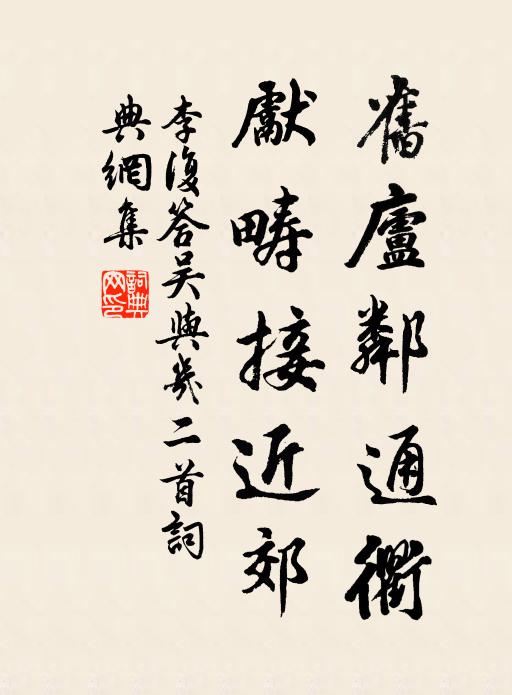 舊廬鄰通衢
獻疇接近郊
李復答吴與幾二首詞
典網集
詞典網印